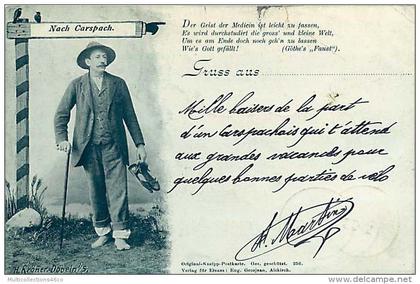 Nach Carspach.
Der Geist der Medicin ist leicht zu fassen,
Es wird durchstudirt die gross' und kleine Welt,
Um es am Ende doch noch geh'n zu lassen
Wie's Gott gefällt! (Göthe's „Faust“).
Gruss aus
Mille baisers de la part
d'un Carspachais qui t'attend
aux grandes vacances pour
quelques bonnes parties de vélo
A. Martin
H. Kroher
Original-Kneipp-Postkarte. Ges. geschützt. 256.
Verlag für Elsass: Eug. Grosjean, Altkirch.
© Multicollections46ro
delcampe.net